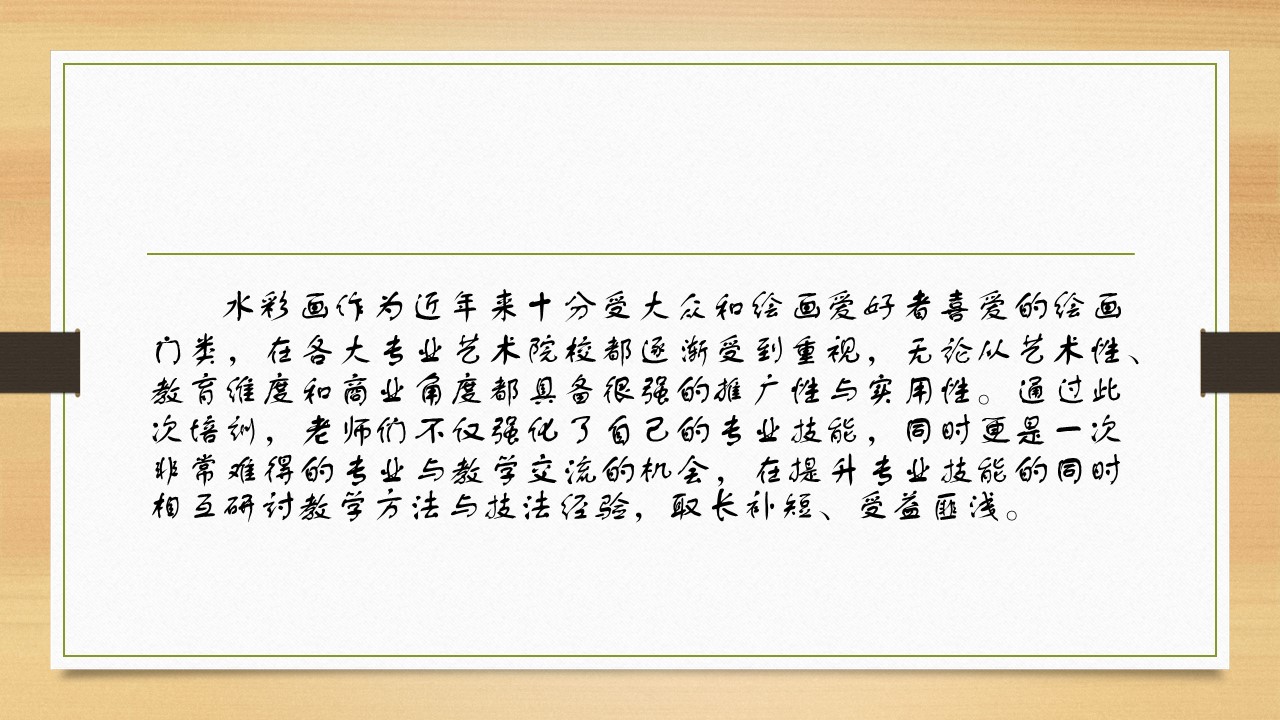 水彩画作为近年来十分受大众和绘画爱好者喜爱的绘画
门类，在各大专业艺术院校都逐渐受到重视，无论从艺术性、
教育维度和商业角度都具备很强的推广性与实用性。通过此
次培训，老师们不仅强化了自己的专业技能，同时更是一次
非常难得的专业与教学交流的机会，在提升专业技能的同时
相互研讨教学方法与技法经验，取长补短、受益匪浅。